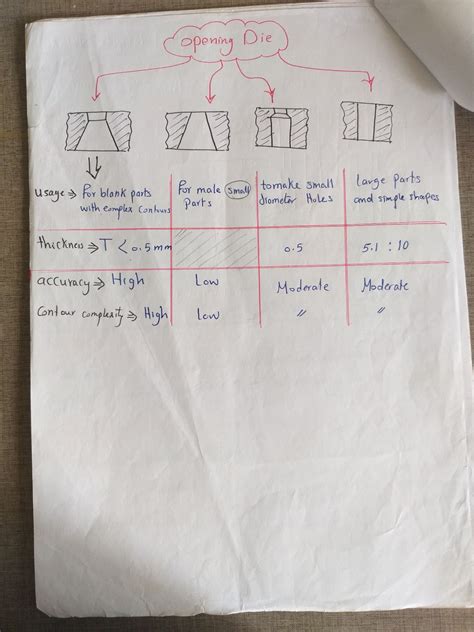 Opening Die
usage ⇒ For blank parts
with complex contours
For male small
Parts
tomake small
diameter Holes
large parts
and simple shapes
thickness ⇒ T < 0.5mm
0.5
5.1 : 10
accuracy ⇒ High
Low
Moderate
Moderate
Contour complexity ⇒ High
Low
〃
〃